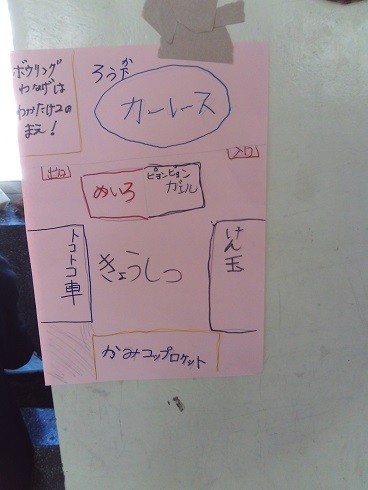 ボウリング
わなげは
わかたけ2の
まえ!
ろうか
カーレース
出口
入口
めいろ
ピョンピョン
ガエル
トコトコ車
きょうしつ
けん玉
かみコップロケット